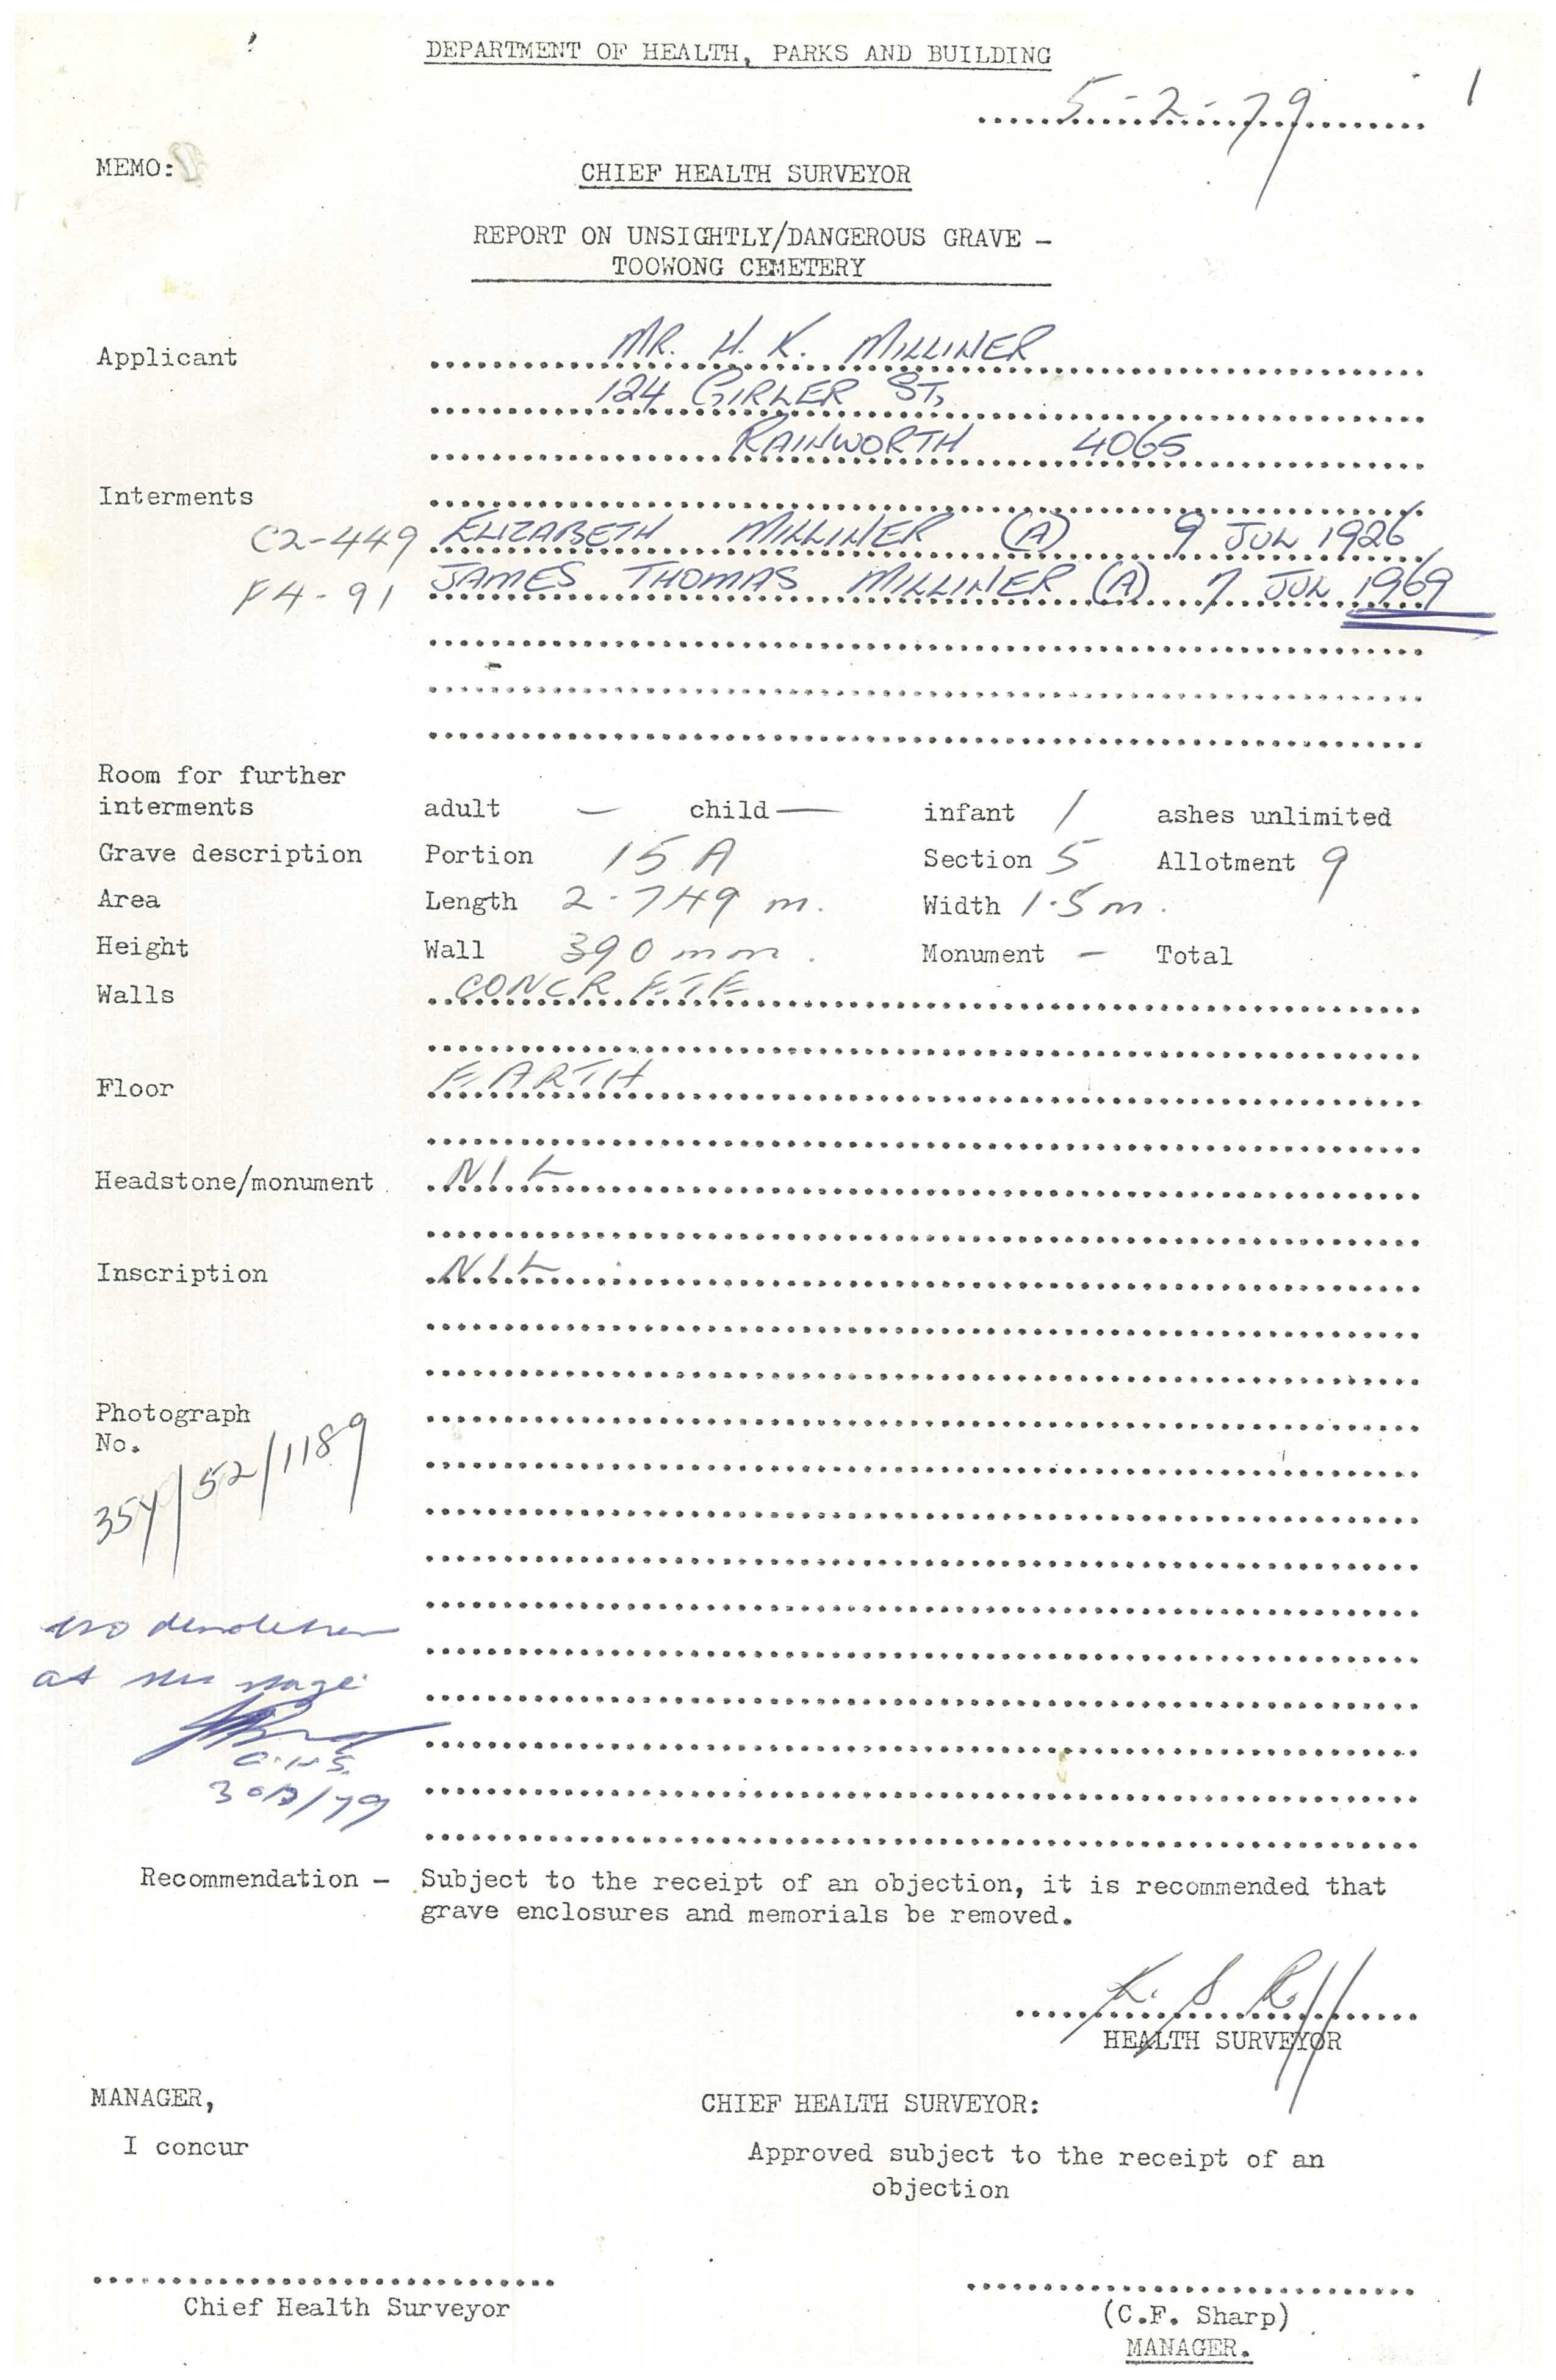 DEPARTMENT OF HEALTH, PARKS AND BUILDING
1
5-2-79
MEMO:
CHIEF HEALTH SURVEYOR
REPORT ON UNSIGHTLY/DANGEROUS GRAVE -
TOOWONG CEMETERY
Applicant MR. H. K. MILLINER
124 GIRLER ST,
RAINWORTH 4065
Interments
C2-449 ELIZABETH MILLINER (A) 9 JUL 1926
F4-91 JAMES THOMAS MILLINER (A) 7 JUL 1969
Room for further
interments adult — child — infant / ashes unlimited
Grave description Portion 15A Section 5 Allotment 9
Area Length 2.749 m. Width 1.5m.
Height Wall 390mm. Monument — Total
Walls CONCRETE
Floor EARTH
Headstone/monument NIL
Inscription NIL
Photograph
No.
354/52/1189
no demolition
at this stage
C.H.S.
Recommendation - Subject to the receipt of an objection, it is recommended that
grave enclosures and memorials be removed.
HEALTH SURVEYOR
MANAGER, CHIEF HEALTH SURVEYOR:
I concur Approved subject to the receipt of an
objection
Chief Health Surveyor (C.F. Sharp)
MANAGER.